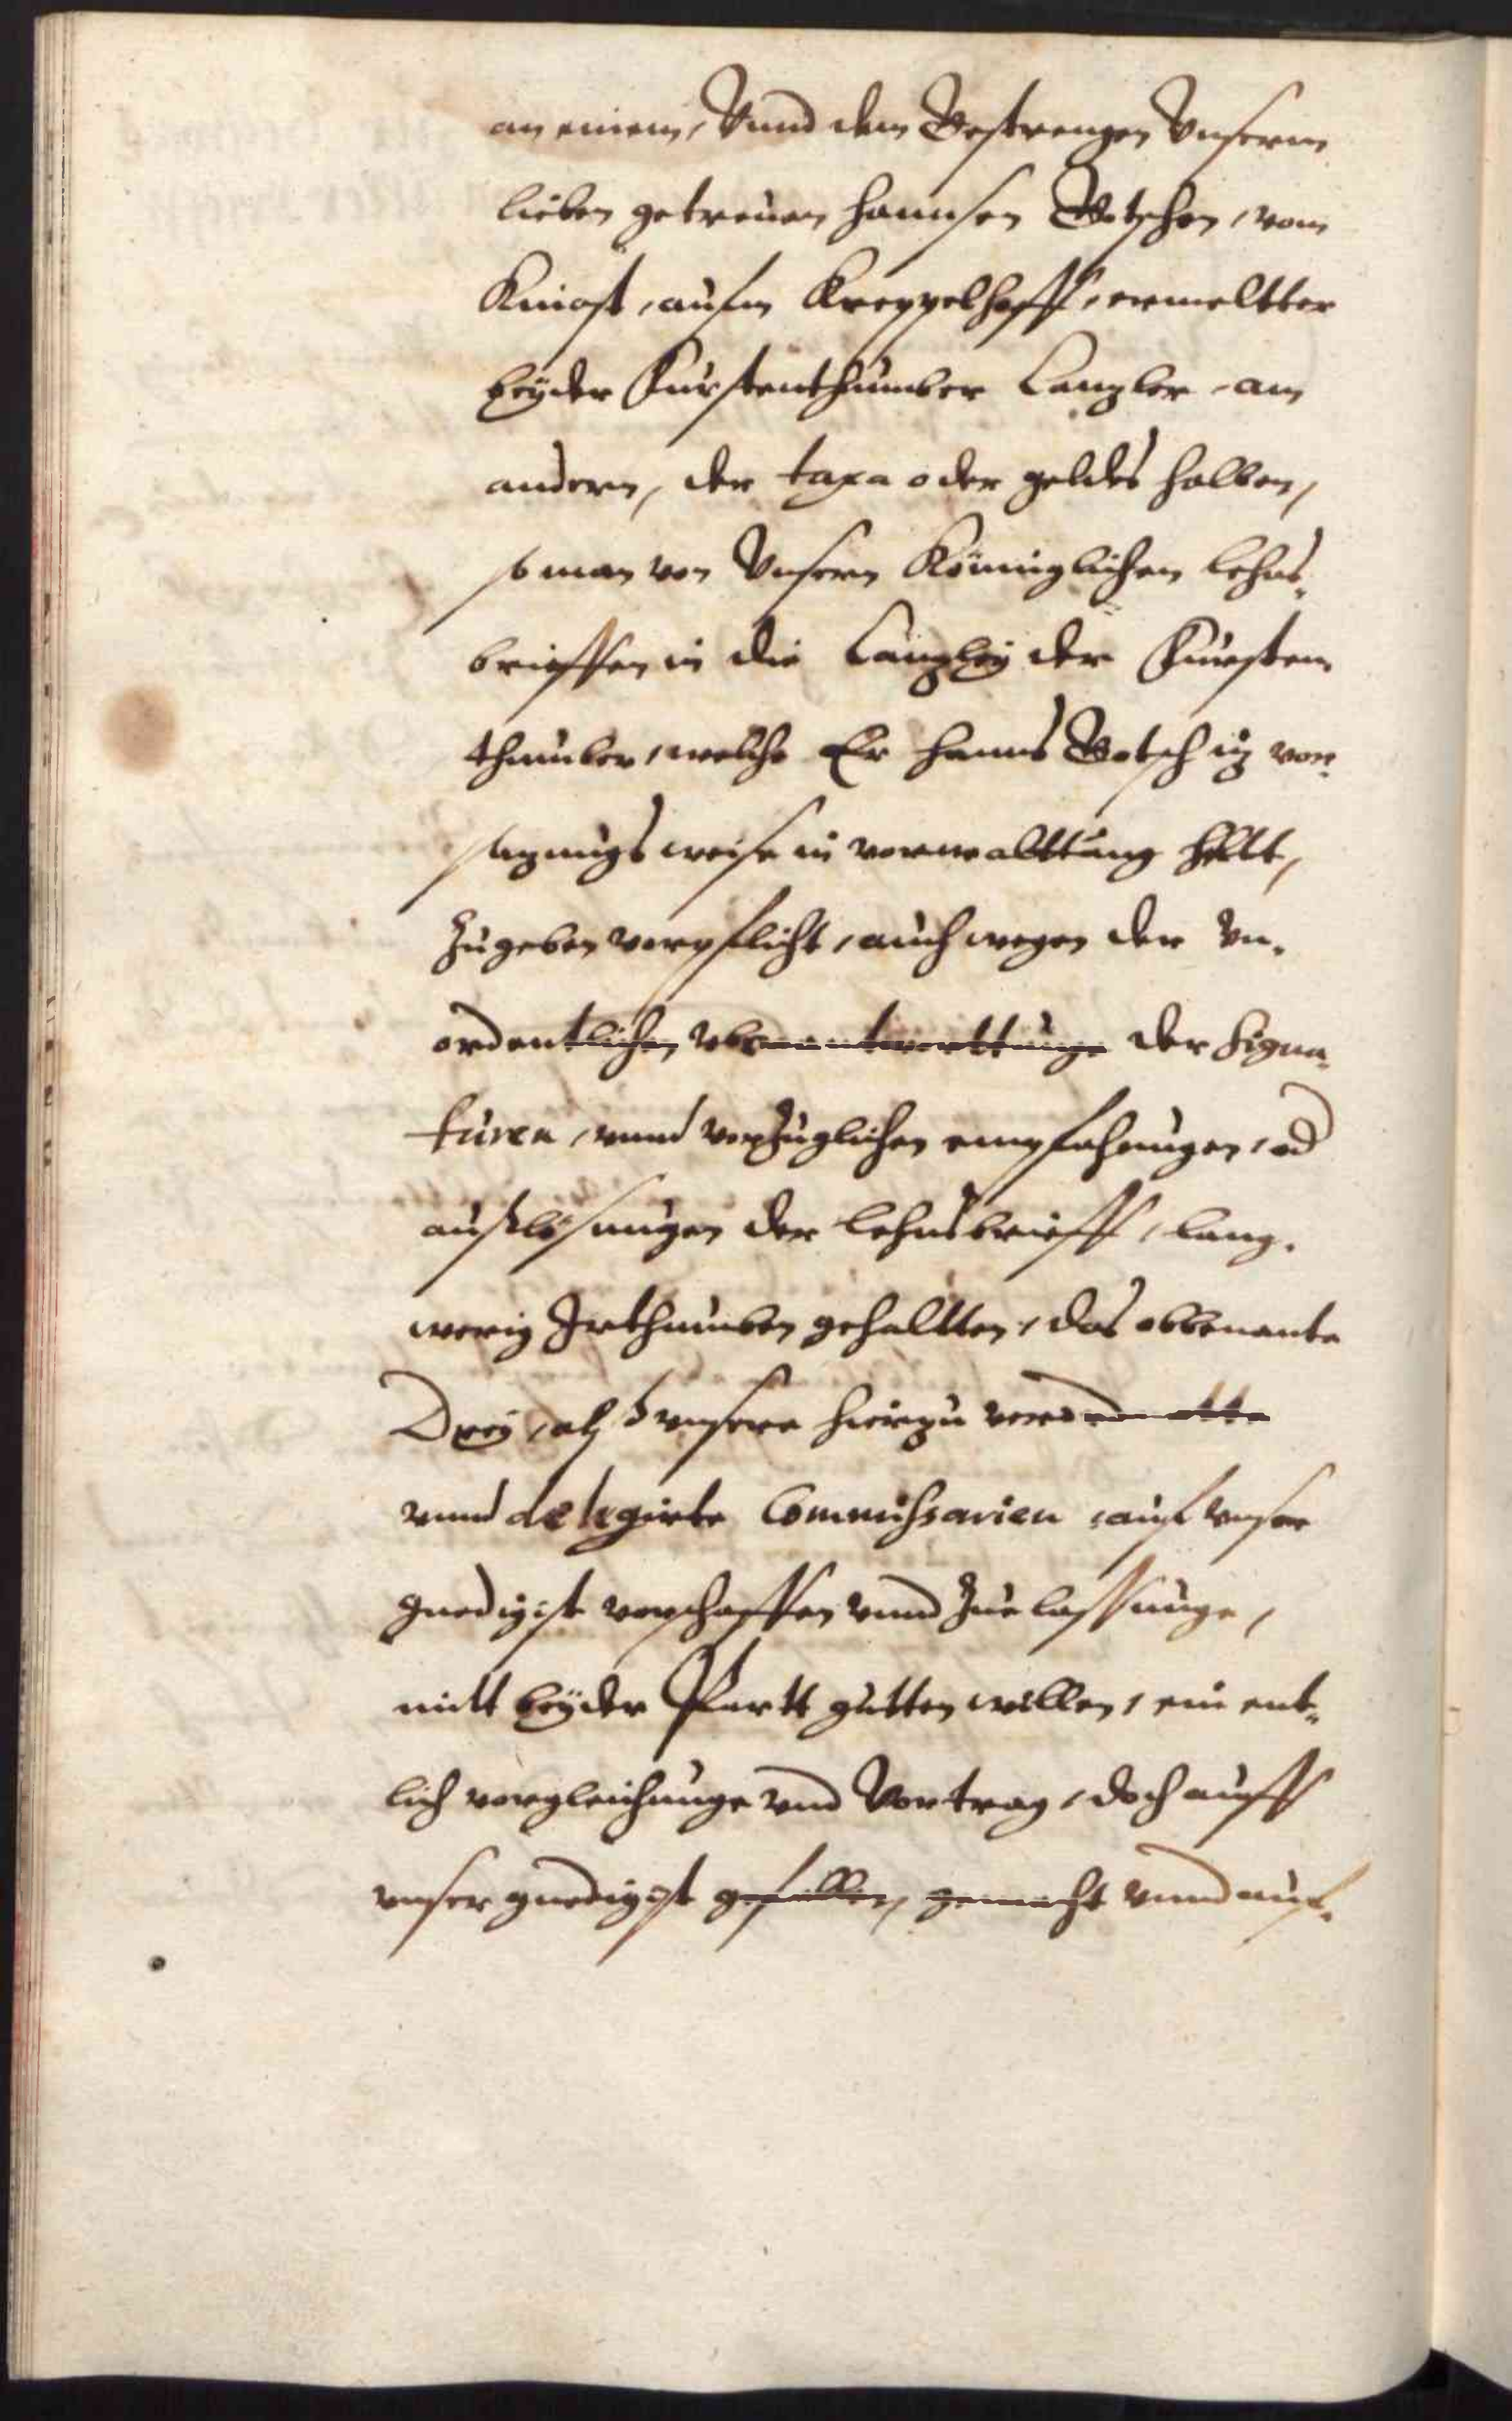 an einem, Vnnd dem Gestrengen Vnserm
lieben getreuen Hannsen Gotschen, vom
Kinast, aufm Kreppelhoff, ermeltter
beyder Furstenthumber Cantzler, am
andern, der taxa oder geldes halben,
so man von Vnsern Königlichen lehns¬
brieffen in die Cantzley der Fursten
thumber, welche Er Hanns Gotsch itz vor¬
satzungs weise in vorwalttung helt,
Zugeben vorpflicht, auch wegen der vn¬
ordentlichen vberantworttunge der Signa¬
turen, vnnd vorzuglichen empfahungen, od
außlösungen der lehnsbrieff, lang¬
werig Irthumben gehaltten, das obbenante
Drey, alß vnsere hierzu verordnette
vnnd delegirte Commissarien, auf vnser
gnedigist vorschaffen vnnd Zuelassunge,
mitt beyder Partt gutten willen, ein ent¬
lich vorgleichunge vnd Vortrag, doch auff
vnser gnedigist gefallen, gemacht vnnd auf¬